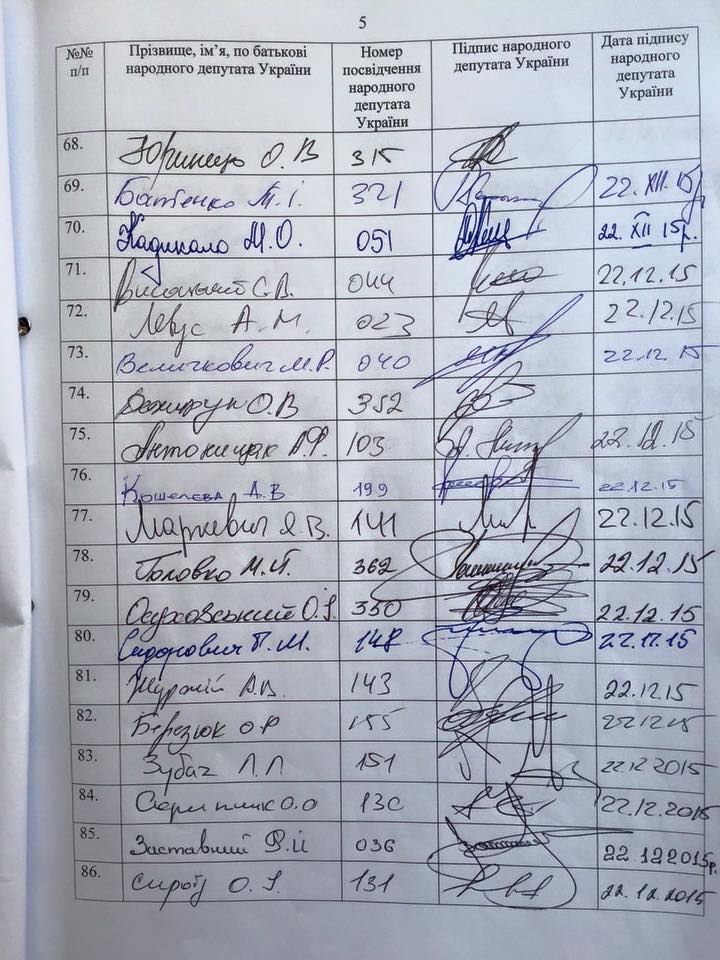 5
№№ п/п Прізвище, ім’я, по батькові народного депутата України Номер посвідчення народного депутата України Підпис народного депутата України Дата підпису народного депутата України
68. Юринець О. В 315
69. Батенко Т. І. 321 22. XII. 15р
70. Кадикало М.О. 051 22. XII 15р.
71. Висоцький С.В. 044 22.12.15
72. Левус А.М. 023 22.12.15
73. Величкович М.Р. 040 22.12.15
74. О.В 352
75. Антонищак А.Ф. 103 22.12.15
76. Кошелєва А.В 199 22.12.15
77. Маркевич Я.В. 141 22.12.15
78. Головко М.Й. 362 22.12.15
79. Осуховський О.І. 350 22.12.15
80. Сидорович Р.М. 148 22.12.15
81. Журжій А.В. 143 22.12.15
82. Березюк О Р 155 22 12 15
83. Зубач Л.Л 151 22.12 2015
84. О.О 130 22.12.2015
85. Заставний Р.Й 036 22.12 2015р.
86. Сироїд О.І. 131 22.12.2015